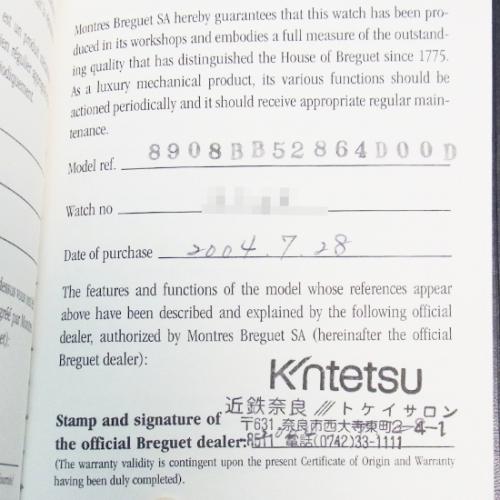 est un produit
Montres Breguet SA hereby guarantees that this watch has been pro-
duced in its workshops and embodies a full measure of the outstand-
ing quality that has distinguished the House of Breguet since 1775.
As a luxury mechanical product, its various functions should be
actioned periodically and it should receive appropriate regular main-
tenance.
Model ref. 8908BB52864D00D
Watch no
Date of purchase 2004.7.28
The features and functions of the model whose references appear
above have been described and explained by the following official
dealer, authorized by Montres Breguet SA (hereinafter the official
Breguet dealer):
Kintetsu
近鉄奈良 /// トケイサロン
Stamp and signature of 〒631 奈良市西大寺東町2-4-1
the official Breguet dealer: 8511 電話(0742)33-1111
(The warranty validity is contingent upon the present Certificate of Origin and Warranty
having been duly completed).